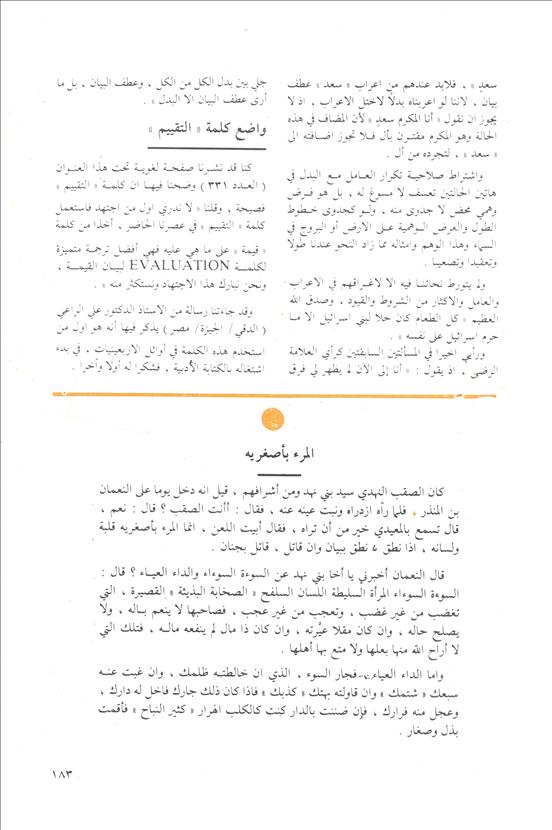 سعدٍ » ، فلابد عندهم من اعراب « سعد » عطف
بيان ، لاننا لو اعربناه بدلاً لاختل الاعراب ، اذ لا
يجوز ان نقول « أنا المكرم سعدٍ » لأن المضاف في هذه
الحالة وهو المكرم مقترن بأل فلا تجوز اضافته الى
« سعد » ، لتجرده من أل .
واشتراط صلاحية تكرار العامل مع البدل في
هاتين الحالتين تعسف لا مسوغ له ، بل هو فرض
وهمي محض لا جدوى منه ، ولو كجدوى خطوط
الطول والعرض الوهمية على الارض أو البروج في
السماء وهذا الوهم وامثاله مما زاد النحو عندنا طولا
وتعقيدا وتصعيبا .
ولم يتورط نحاتنا فيه الا لاغراقهم في الاعراب
والعامل والاكثار من الشروط والقيود ، وصدق الله
العظيم « كل الطعام كان حلا لبني اسرائيل الا ما
حرم اسرائيل على نفسه » .
ورأيي اخيرا في المسألتين السابقتين كرأي العلامة
الرضى ، اذ يقول : « أنا إلى الآن لم يظهر لي فرق
جلي بين بدل الكل من الكل ، وعطف البيان ، بل ما
أرى عطف البيان الا البدل » .
واضع كلمة « التقييم »
كنا قد نشرنا صفحة لغوية تحت هذا العنوان
( العدد ٣٣١ ) وضحنا فيها ان كلمة « التقييم »
فصيحة ، وقلنا « لا ندري اول من اجتهد فاستعمل
كلمة « التقييم » في عصرنا الحاضر ، أخذا من كلمة
« قيمة » على ما هي عليه فهي أفضل ترجمة متميزة
لكلمة EVALUATION لبيان القيمة ،
ونحن نبارك هذا الاجتهاد ونستكثر منه » .
وقد جاءتنا رسالة من الاستاذ الدكتور علي الراعي
( الدقي / الجيزة / مصر ) يذكر فيها أنه هو اول من
استخدم هذه الكلمة في أوائل الاربعينيات ، في بدء
اشتغاله بالكتابة الأدبية ، فشكرا له أولا وأخرا .
المرء بأصغريه
كان الصقب النهدي سيد بني نهد ومن أشرافهم ، قيل انه دخل يوما على النعمان
بن المنذر ، فلما رآه ازدراه ونبت عينه عنه ، فقال : أأنت الصقب ؟ قال : نعم ،
قال تسمع بالمعيدي خير من أن تراه ، فقال أبيت اللعن ، انما المرء بأصغريه قلبة
ولسانه ، اذا نطق نطق ببيان وان قاتل ، قاتل بجنان .
قال النعمان أخبرني يا أخا بني نهد عن السوءة السوءاء والداء العياء ؟ قال :
السوءة السوءاء المرأة السليطة اللسان السلفح « الصخابة البذيئة » القصيرة ، التي
تغضب من غير غضب ، وتعجب من غير عجب ، فصاحبها لا ينعم باله ، ولا
يصلح حاله ، وان كان مقلا عيَّرته ، وان كان ذا مال لم ينفعه ماله ، فتلك التي
لا أراح الله منها بعلها ولا متع بها أهلها .
واما الداء العياء فجار السوء ، الذي ان خالطته ظلمك ، وان غبت عنه
سبعك « شتمك » وان قاولته بهتك « كذبك » فاذا كان ذلك جارك فاخل له دارك ،
وعجل منه فرارك ، فإن ضننت بالدار كنت كالكلب الهرار « كثير النباح » فأقمت
بذل وصغار .
١٨٣